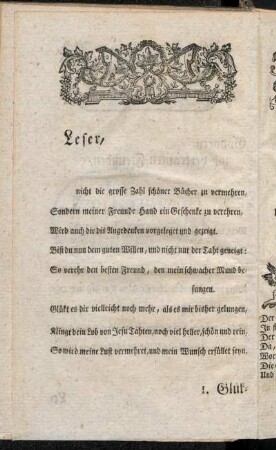 Leser,
nicht die grosse Zahl schöner Bücher zu vermehren,
Sondern meiner Freunde Hand ein Geschenke zu verehren,
Wird auch dir dis Angedenken vorgeleget und gezeigt.
Bist du nun dem guten Willen, und nicht nur der Taht geneigt:
So verehr den besten Freund, den mein schwacher Mund be-
sangen.
Glükt es dir vielleicht noch mehr, als es mir bisher gelungen,
Klingt dein Lob von Jesu Tahten, noch viel heller, schön und rein,
So wird meine Lust vermehret, und mein Wunsch erfüllet seyn.
1. Glük-
Der
In
Der
Da,
Wor
Die
Und